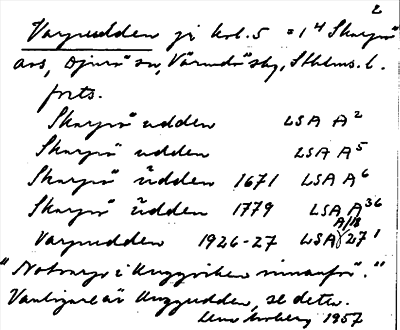 2
Varpudden på kbl. 5 = 1⁴ Skarpö
ars, Djurö sn, Värmdö skg, Sthlms. l.
forts.
Skarpö udden LSA A²
Skarpö udden LSA A⁵
Skarpö üdden 1671 LSA A⁶
Skarpö üdden 1779 LSA A³⁶
Varpudden 1926-27 LSA A/18 27¹
"Notvarp i innanför."
Vanligare är udden, se detta.
1957